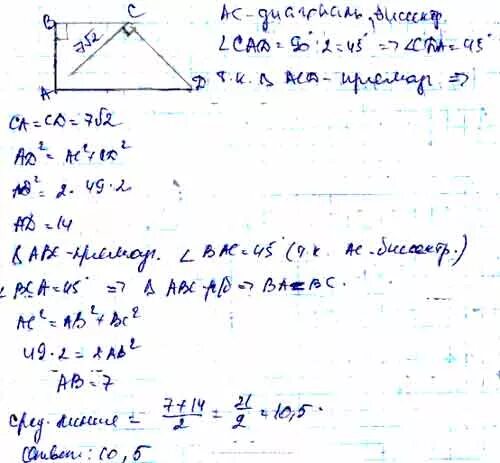 B
C
7√2
A
D
AC - диагональ, биссектр.
∠CAD = 90° : 2 = 45° ⇒ ∠CDA = 45°
т.к. Δ ACD - прямоуг. ⇒
CA = CD = 7√2
AD² = AC² + CD²
AD² = 2 · 49 · 2
AD = 14
Δ ABC - прямоуг. ∠ BAC = 45° (т.к. AC - биссектр.)
∠ BCA = 45° ⇒ Δ ABC - р/б ⇒ BA = BC.
AC² = AB² + BC²
49 · 2 = 2AB²
AB = 7
сред. линия = 7+14/2 = 21/2 = 10,5.
Ответ: 10,5